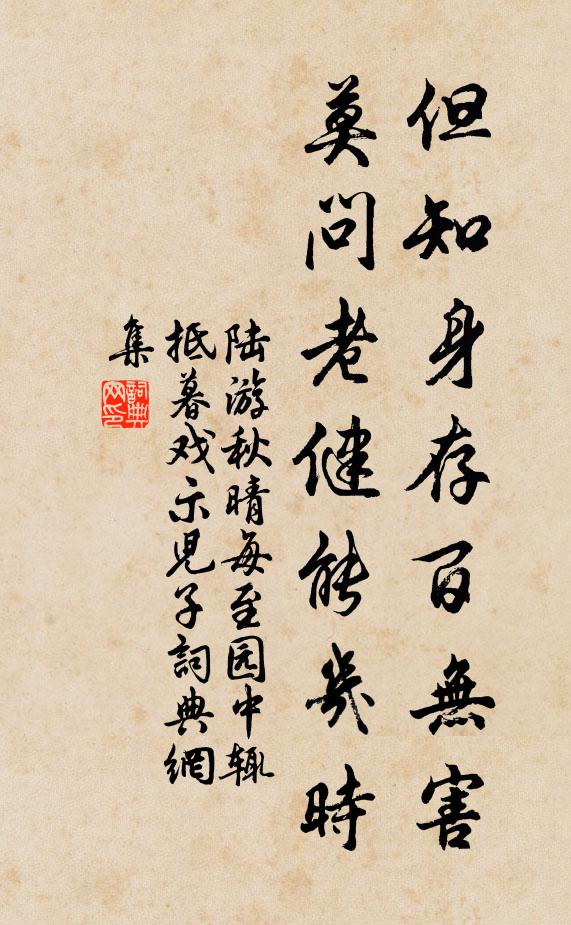 但知身存百無害
莫問老健能幾時
陆游秋晴每至园中辄
抵暮戏示児子詞典網
集
詞典网印